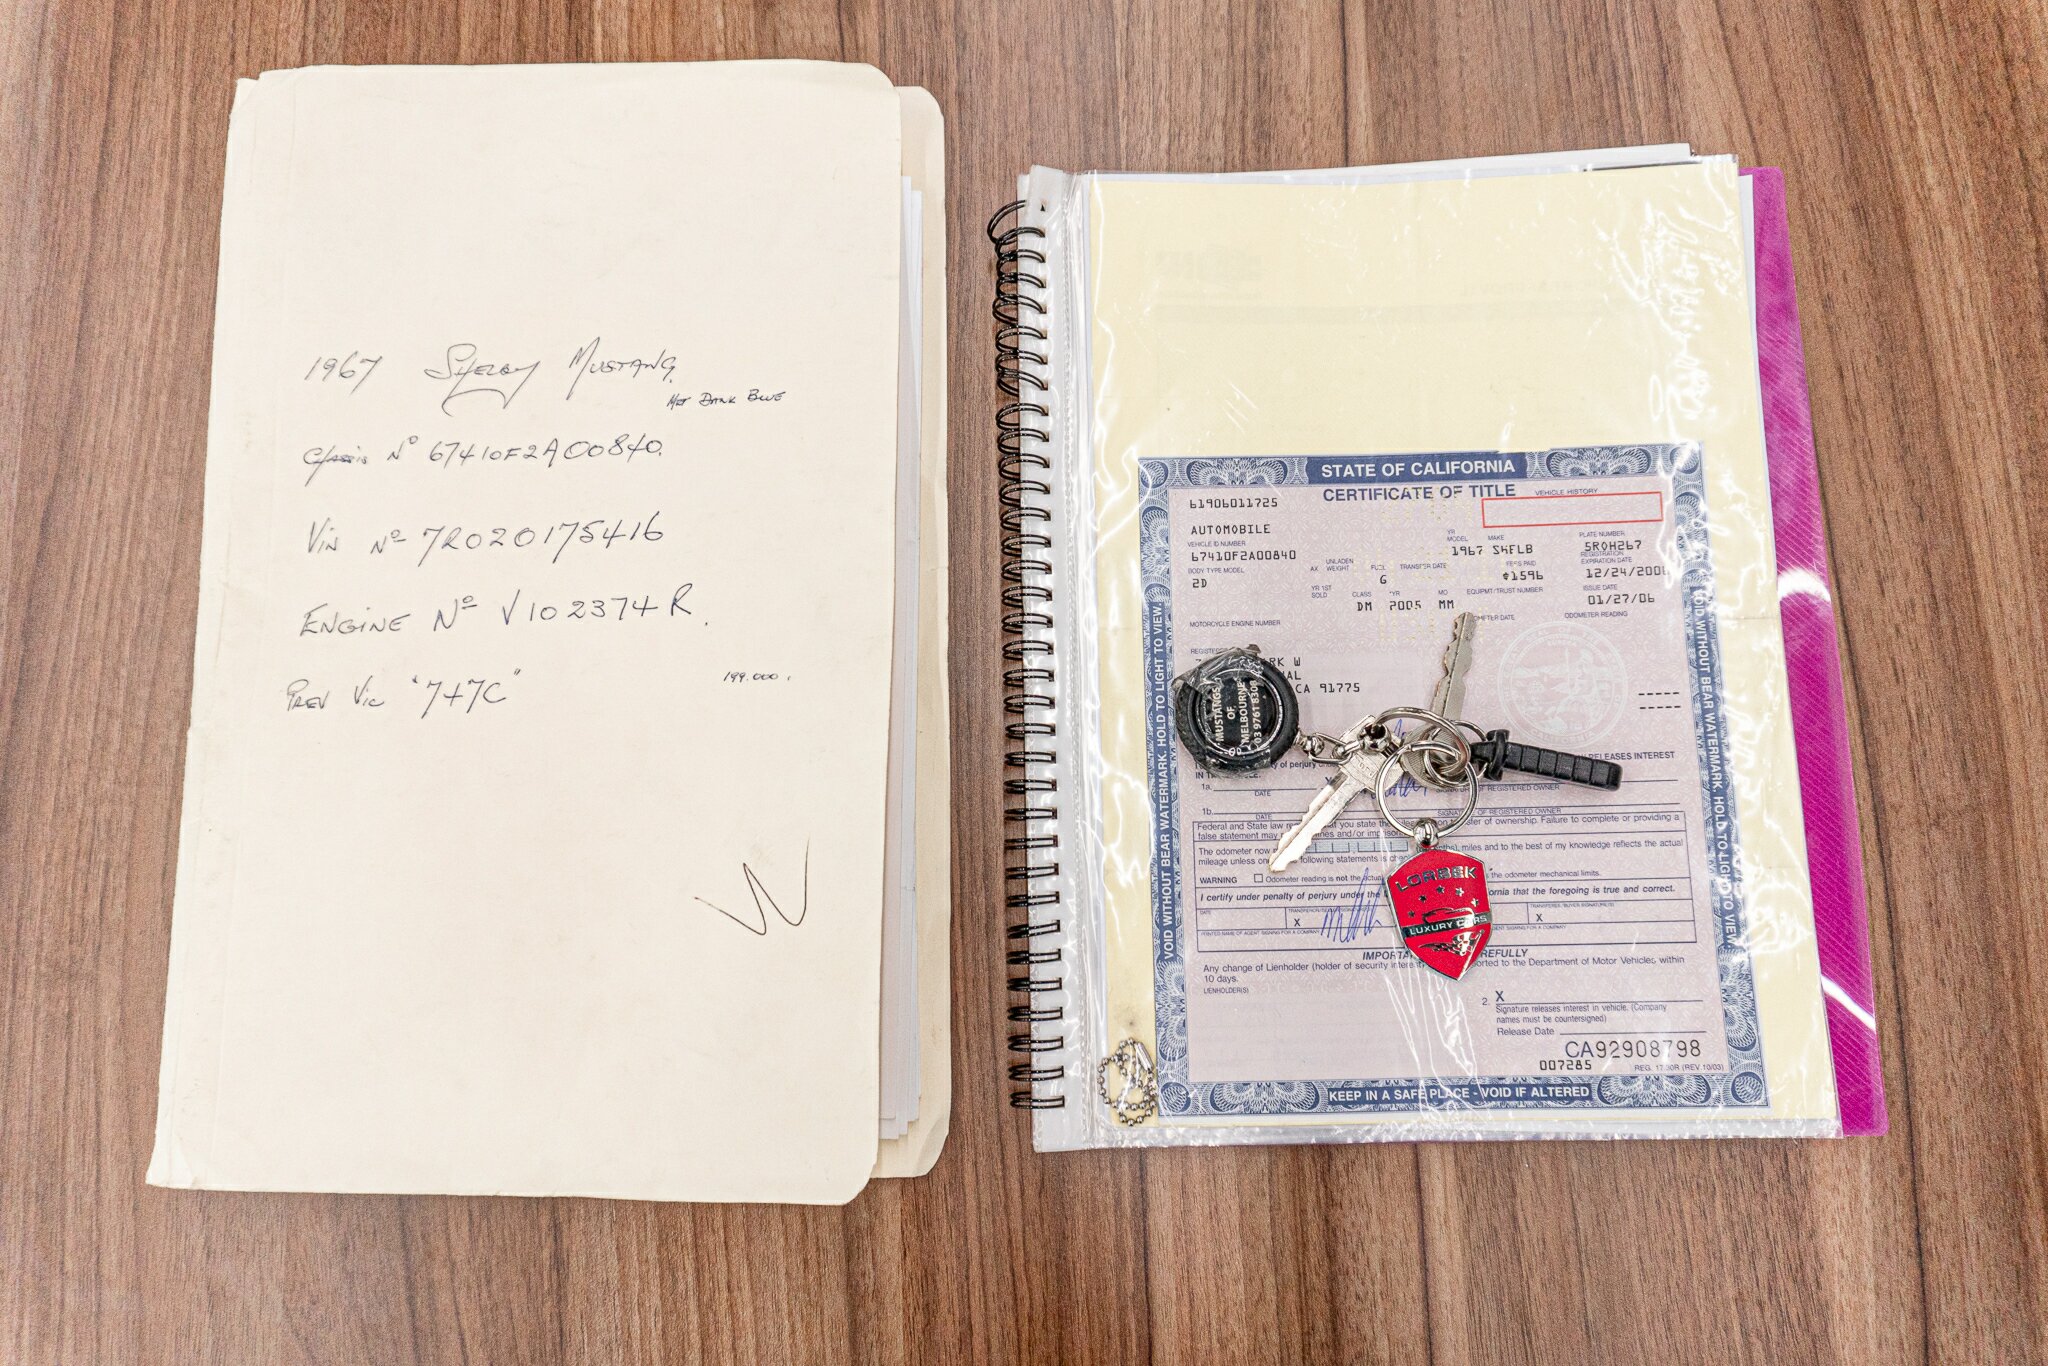 1967 SHELBY MUSTANG.
MET DARK BLUE
Chassis Nº 67410F2A00840.
Vin Nº 7R020175416
ENGINE Nº V102374R.
PREV VIC "747C"
199.000.
STATE OF CALIFORNIA
CERTIFICATE OF TITLE
VEHICLE HISTORY
61906011725
AUTOMOBILE
VEHICLE ID NUMBER
67410F2A00840
YR MODEL
MAKE
1967 SHELB
PLATE NUMBER
5ROH267
BODY TYPE MODEL
2D
AX
UNLADEN WEIGHT
FUEL
G
TRANSFER DATE
FEES PAID
$1596
REGISTRATION EXPIRATION DATE
12/24/2006
YR 1ST SOLD
CLASS
DM
*YR
2005
MO
MM
EQUIPMT/TRUST NUMBER
ISSUE DATE
01/27/06
MOTORCYCLE ENGINE NUMBER
ODOMETER READING
RK W
CA 91775
MUSTANGS
OF
MELBOURNE
03 9761 8300
RELEASES INTEREST
1a.
DATE
X
OF REGISTERED OWNER
1b.
DATE
SIGNATURE OF REGISTERED OWNER
Federal and State law that you state the transfer of ownership. Failure to complete or providing a
false statement may fines and/or
The odometer now miles and to the best of my knowledge reflects the actual
mileage unless one following statements is
WARNING Odometer reading is not the actual the odometer mechanical limits.
I certify under penalty of perjury under the California that the foregoing is true and correct.
DATE
X
X
PRINTED NAME OF AGENT SIGNING FOR A COMPANY
AGENT SIGNING FOR A COMPANY
LORBEK
LUXURY CARS
Any change of Lienholder (holder of security interest) to the Department of Motor Vehicles within
10 days.
LIENHOLDER(S)
2. X
Signature releases interest in vehicle. (Company
names must be countersigned)
Release Date
CA92908798
007285
REG. 17.30R (REV 10/03)
KEEP IN A SAFE PLACE - VOID IF ALTERED
VOID WITHOUT BEAR WATERMARK. HOLD TO LIGHT TO VIEW.
VOID WITHOUT BEAR WATERMARK. HOLD TO LIGHT TO VIEW.